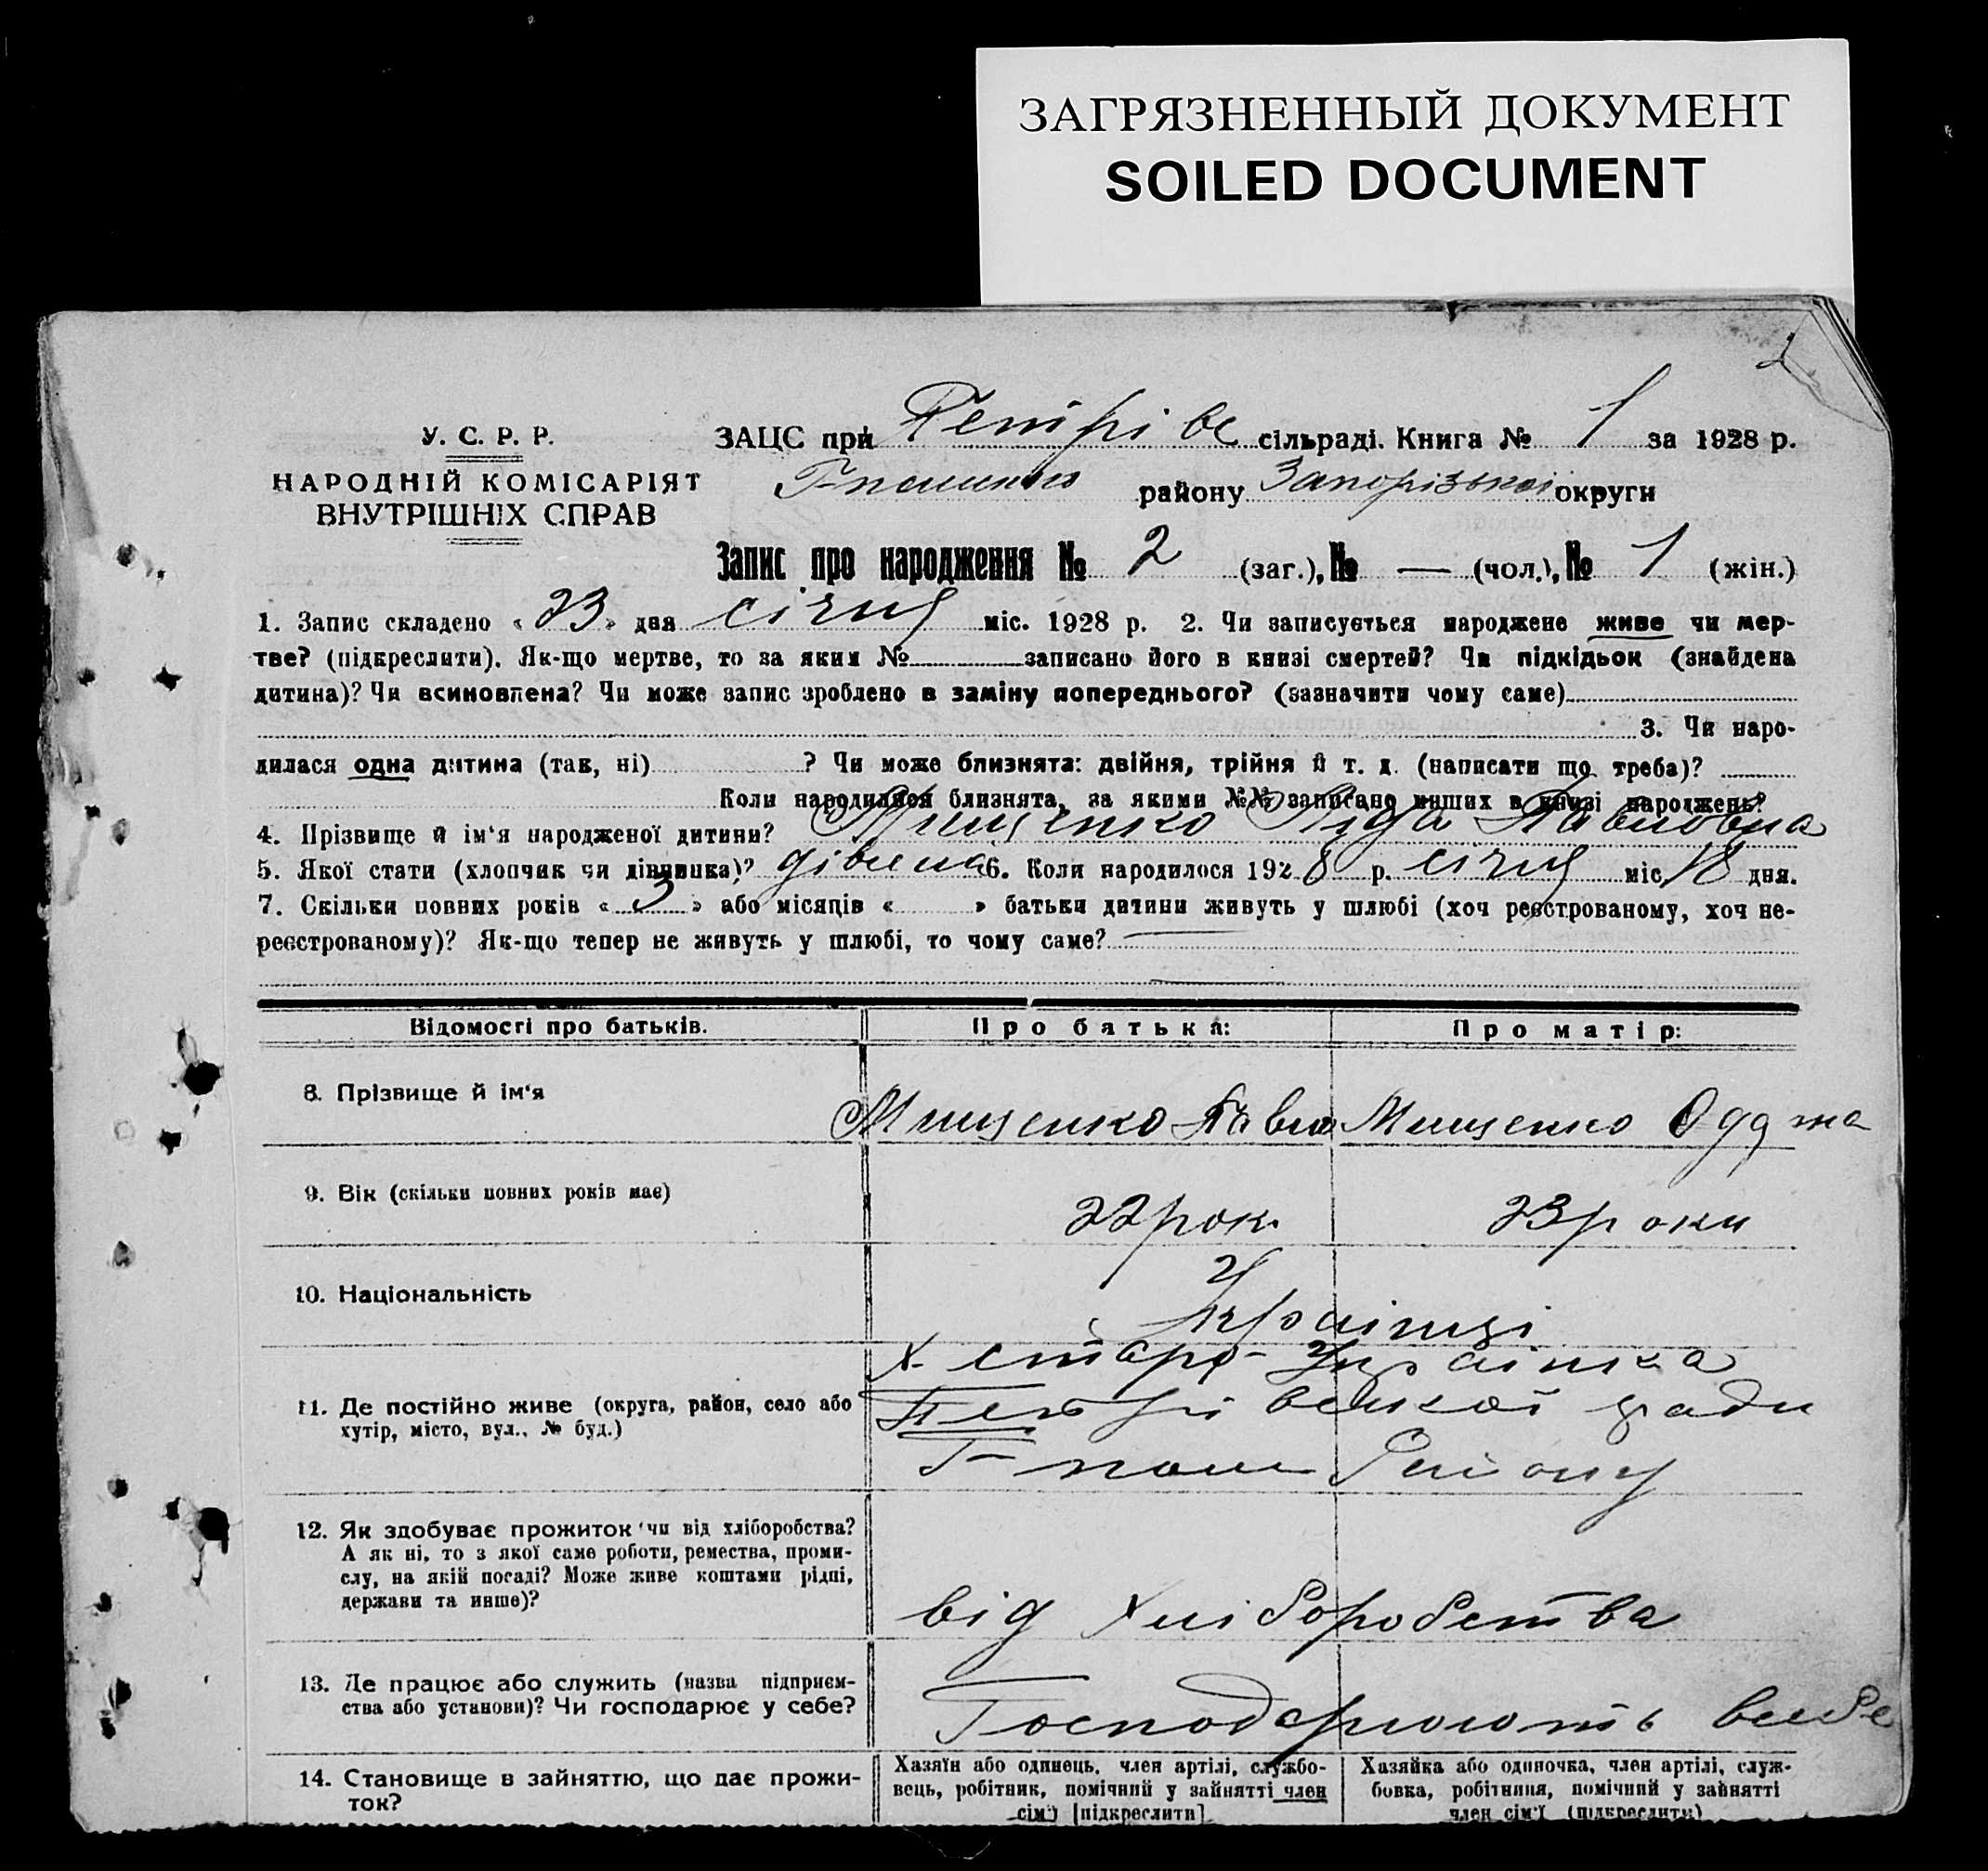 ЗАГРЯЗНЕННЫЙ ДОКУМЕНТ
SOILED DOCUMENT
У. С. Р. Р.
НАРОДНІЙ КОМІСАРІЯТ
ВНУТРІШНІХ СПРАВ
ЗАЦС при Петрівс сільраді. Книга № 1 за 1928 р.
району Запорізької округи
Запис про народження № 2 (заг.), № — (чол.), № 1 (жін.)
1. Запис складено « 23 » дня січня міс. 1928 р. 2. Чи записується народжене живе чи мер-
тве? (підкреслити). Як-що мертве, то за яким № записано його в книзі смертей? Чи підкідьок (знайдена
дитина)? Чи всиновлена? Чи може запис зроблено в заміну попереднього? (зазначити чому саме)
3. Чи наро-
дилася одна дитина (так, ні) ? Чи може близнята: двійня, трійня й т. д. (написати що треба)?
Коли народилися близнята, за якими №№ записано инших в книзі народжень?
4. Прізвище й ім'я народженої дитини? Мищенко Ліда Павловна
5. Якої стати (хлопчик чи дівчинка)? дівчина 6. Коли народилося 1928 р. січня міс. 18 дня.
7. Скільки повних років « 3 » або місяців « » батьки дитини живуть у шлюбі (хоч реєстрованому, хоч не-
реєстрованому)? Як-що тепер не живуть у шлюбі, то чому саме? —
Відомості про батьків. Про батька: Про матір:
8. Прізвище й ім'я
Мищенко Павло Мищенко
9. Вік (скільки повних років має)
22 рок. 23 роки
10. Національність
Українці
х. Старо-Українка
11. Де постійно живе (округа, район, село або
хутір, місто, вул., № буд.)
Петрівської ради
Г-пол Району
12. Як здобуває прожиток чи від хліборобства?
А як ні, то з якої саме роботи, ремества, проми-
слу, на якій посаді? Може живе коштами рідні,
держави та инше)?
від Хліборобства
13. Де працює або служить (назва підприєм-
ства або установи)? Чи господарює у себе?
Господарюють в себе
14. Становище в зайняттю, що дає прожи-
ток?
Хазяїн або одинець, член артілі, службо-
вець, робітник, помічний у зайнятті член
сім'ї [підкреслити]
Хазяйка або одиночка, член артілі, служ-
бовка, робітниця, помічний у зайнятті
член сім'ї (підкреслити)